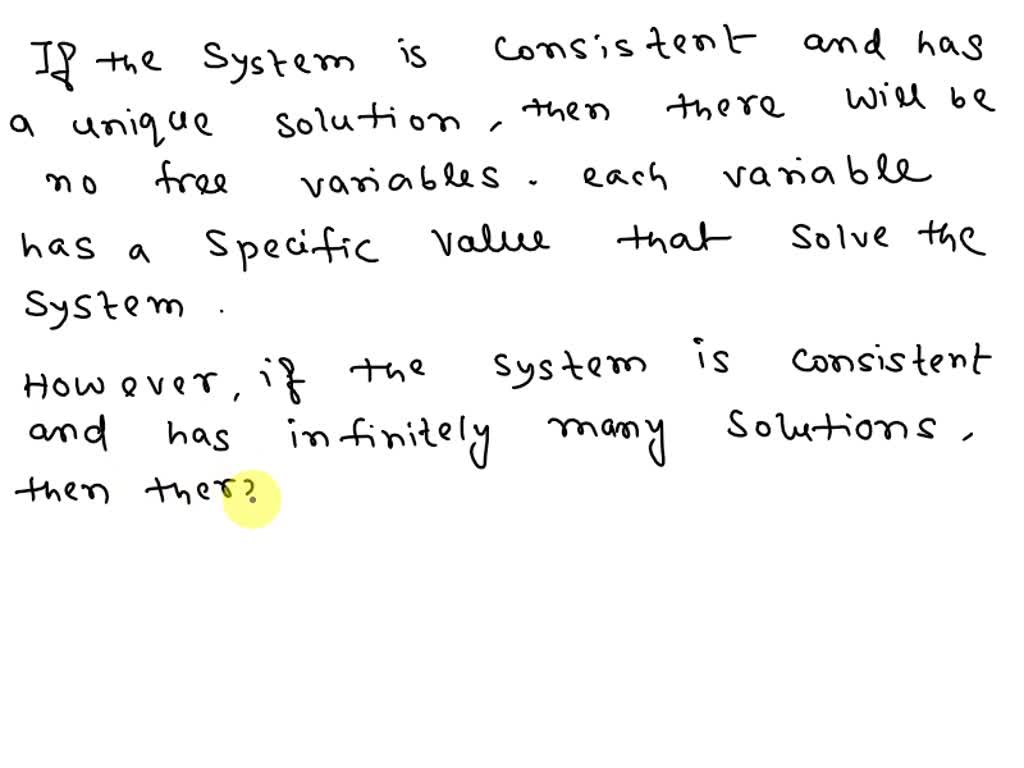 If the system is consistent and has
a unique solution, then there will be
no free variables. each variable
has a specific value that solve the
system.
However, if the system is consistent
and has infinitely many solutions,
then ther